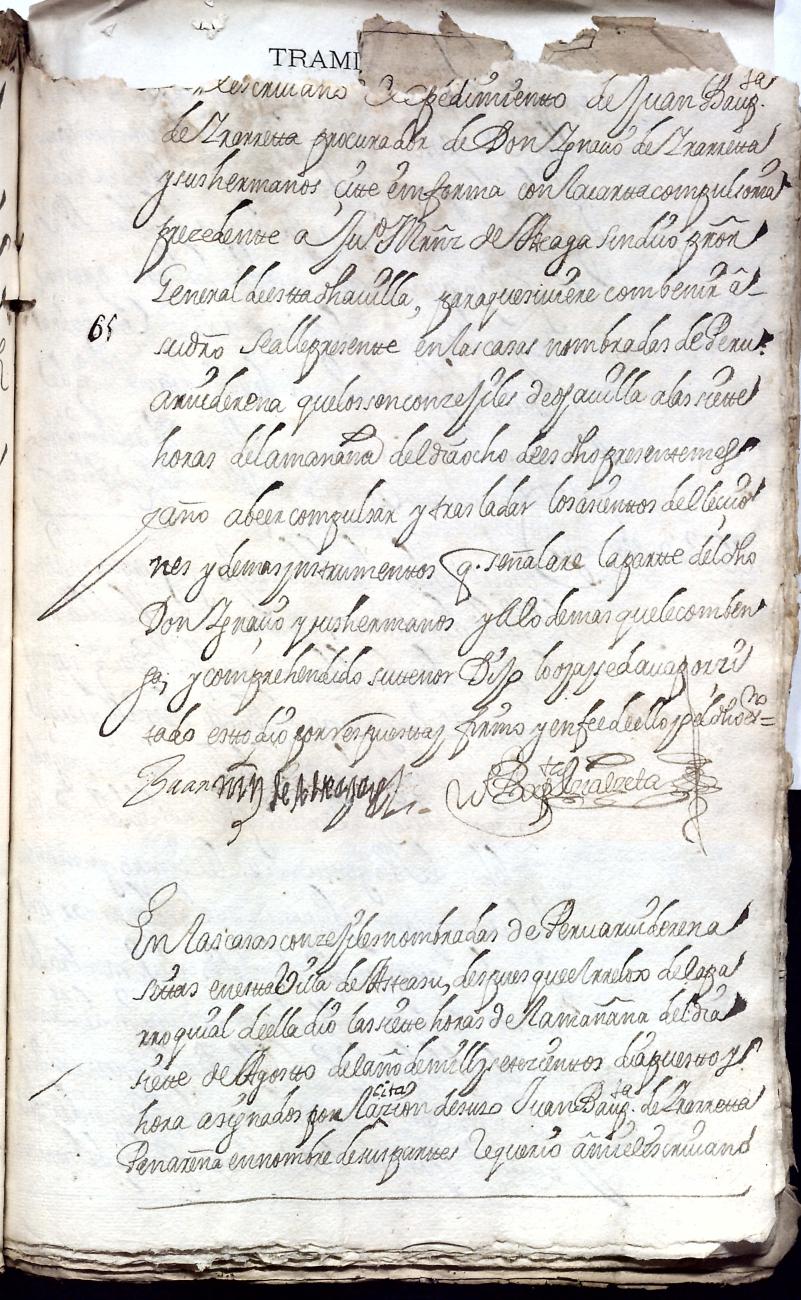 TRAMI
el escriuano de pedimiento de Juan Baup.ta
de Yrarretta procurador de Don Ygnacio de Yrarretta
y sus hermanos citte en forma con la cartta compulsoria
precedentte a Ju.o Mrñz de Atteaga sindico prôr
General de estta dha uilla, para que si uiere combenir â
su drô se alle presentte en las casas nombradas de Peru
aruiderena que lo son conzejiles de esa uilla a las siette
horas de la mañana del dia ocho de es dho presente mes
y año a beer compulsar y trasladar los asienttos de eleccio
nes y demas ynstrumenttos q. señalare la partte del dho
Don Ygnacio y sus hermanos y a lo demas que le comben
ga; y comprehendido su tenor Dijo lo oya y se daua por zi
tado estto dio por respuestta, firmo y en fee de ello yo el dho es.no =
Juan Mrñ de Atteaga
En las casas conzejiles nombradas de Peruaruiderena
sittas en estta Villa de Astteasu, despues que el rrelox de la pa
rroquial de ella dio las siette horas de la mañana del dia
siette de Agostto del año de mill y settecienttos dia puestto y
hora asignados por la citazion de suso Juan Baup.ta de Yrarretta
Penarena en nombre de sus parttes requerio â mi el escriuano
65